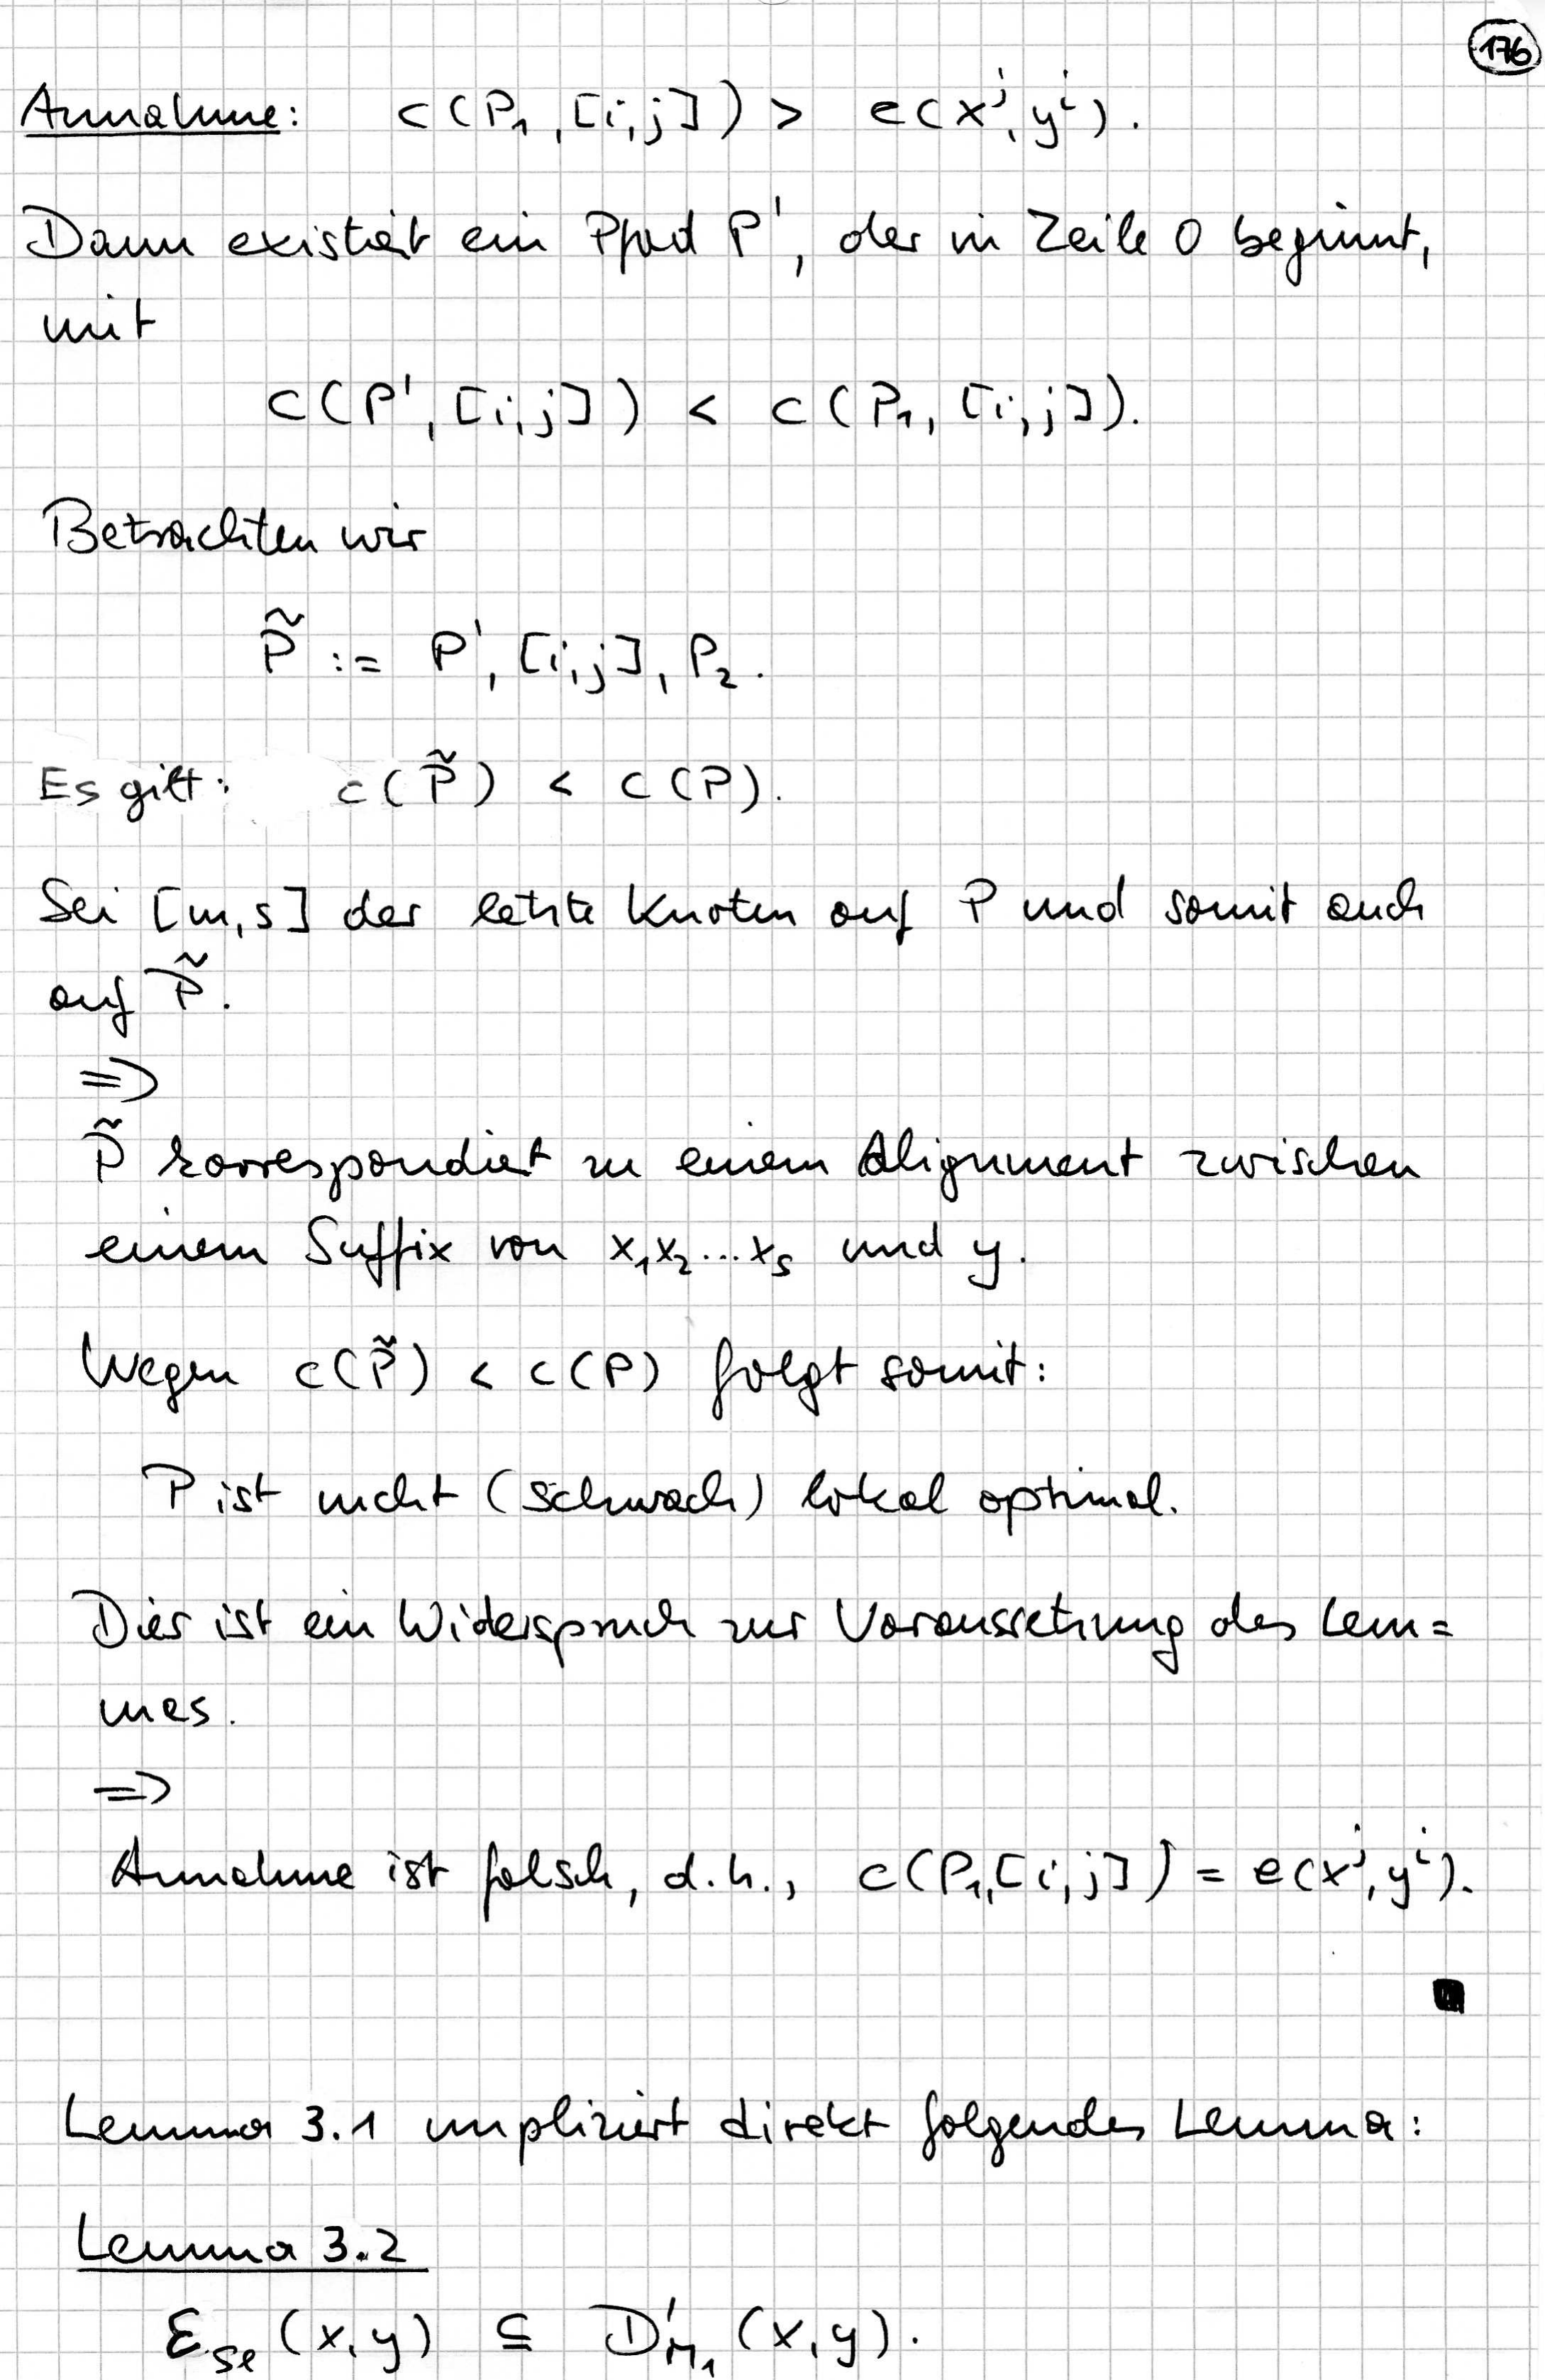 176
Annahme: c(P₁,[i,j]) > e(xʲ,yⁱ).
Dann existiert ein Pfad P', der in Zeile 0 beginnt,
mit
c(P',[i,j]) < c(P₁,[i,j]).
Betrachten wir
P̃ := P',[i,j],P₂.
Es gilt: c(P̃) < c(P).
Sei [m,s] der letzte Knoten auf P und somit auch
auf P̃.
=>
P̃ korrespondiert zu einem Alignment zwischen
einem Suffix von x₁x₂...xₛ und y.
Wegen c(P̃) < c(P) folgt somit:
P ist nicht (schwach) lokal optimal.
Dies ist ein Widerspruch zur Voraussetzung des Lem=
mas.
=>
Annahme ist falsch, d.h., c(P₁,[i,j]) = e(xʲ,yⁱ).
Lemma 3.1 impliziert direkt folgendes Lemma:
Lemma 3.2
(x,y) ⊆ (x,y).